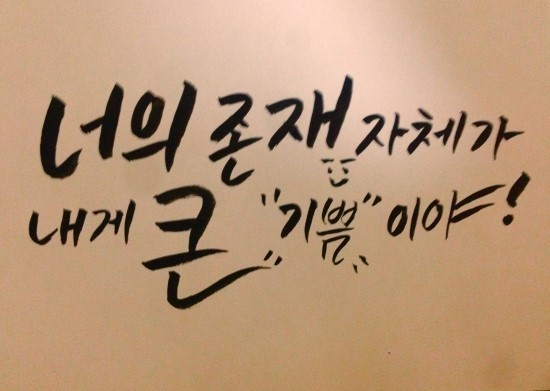 너의 존재 자체가
내게 큰 "기쁨" 이야!